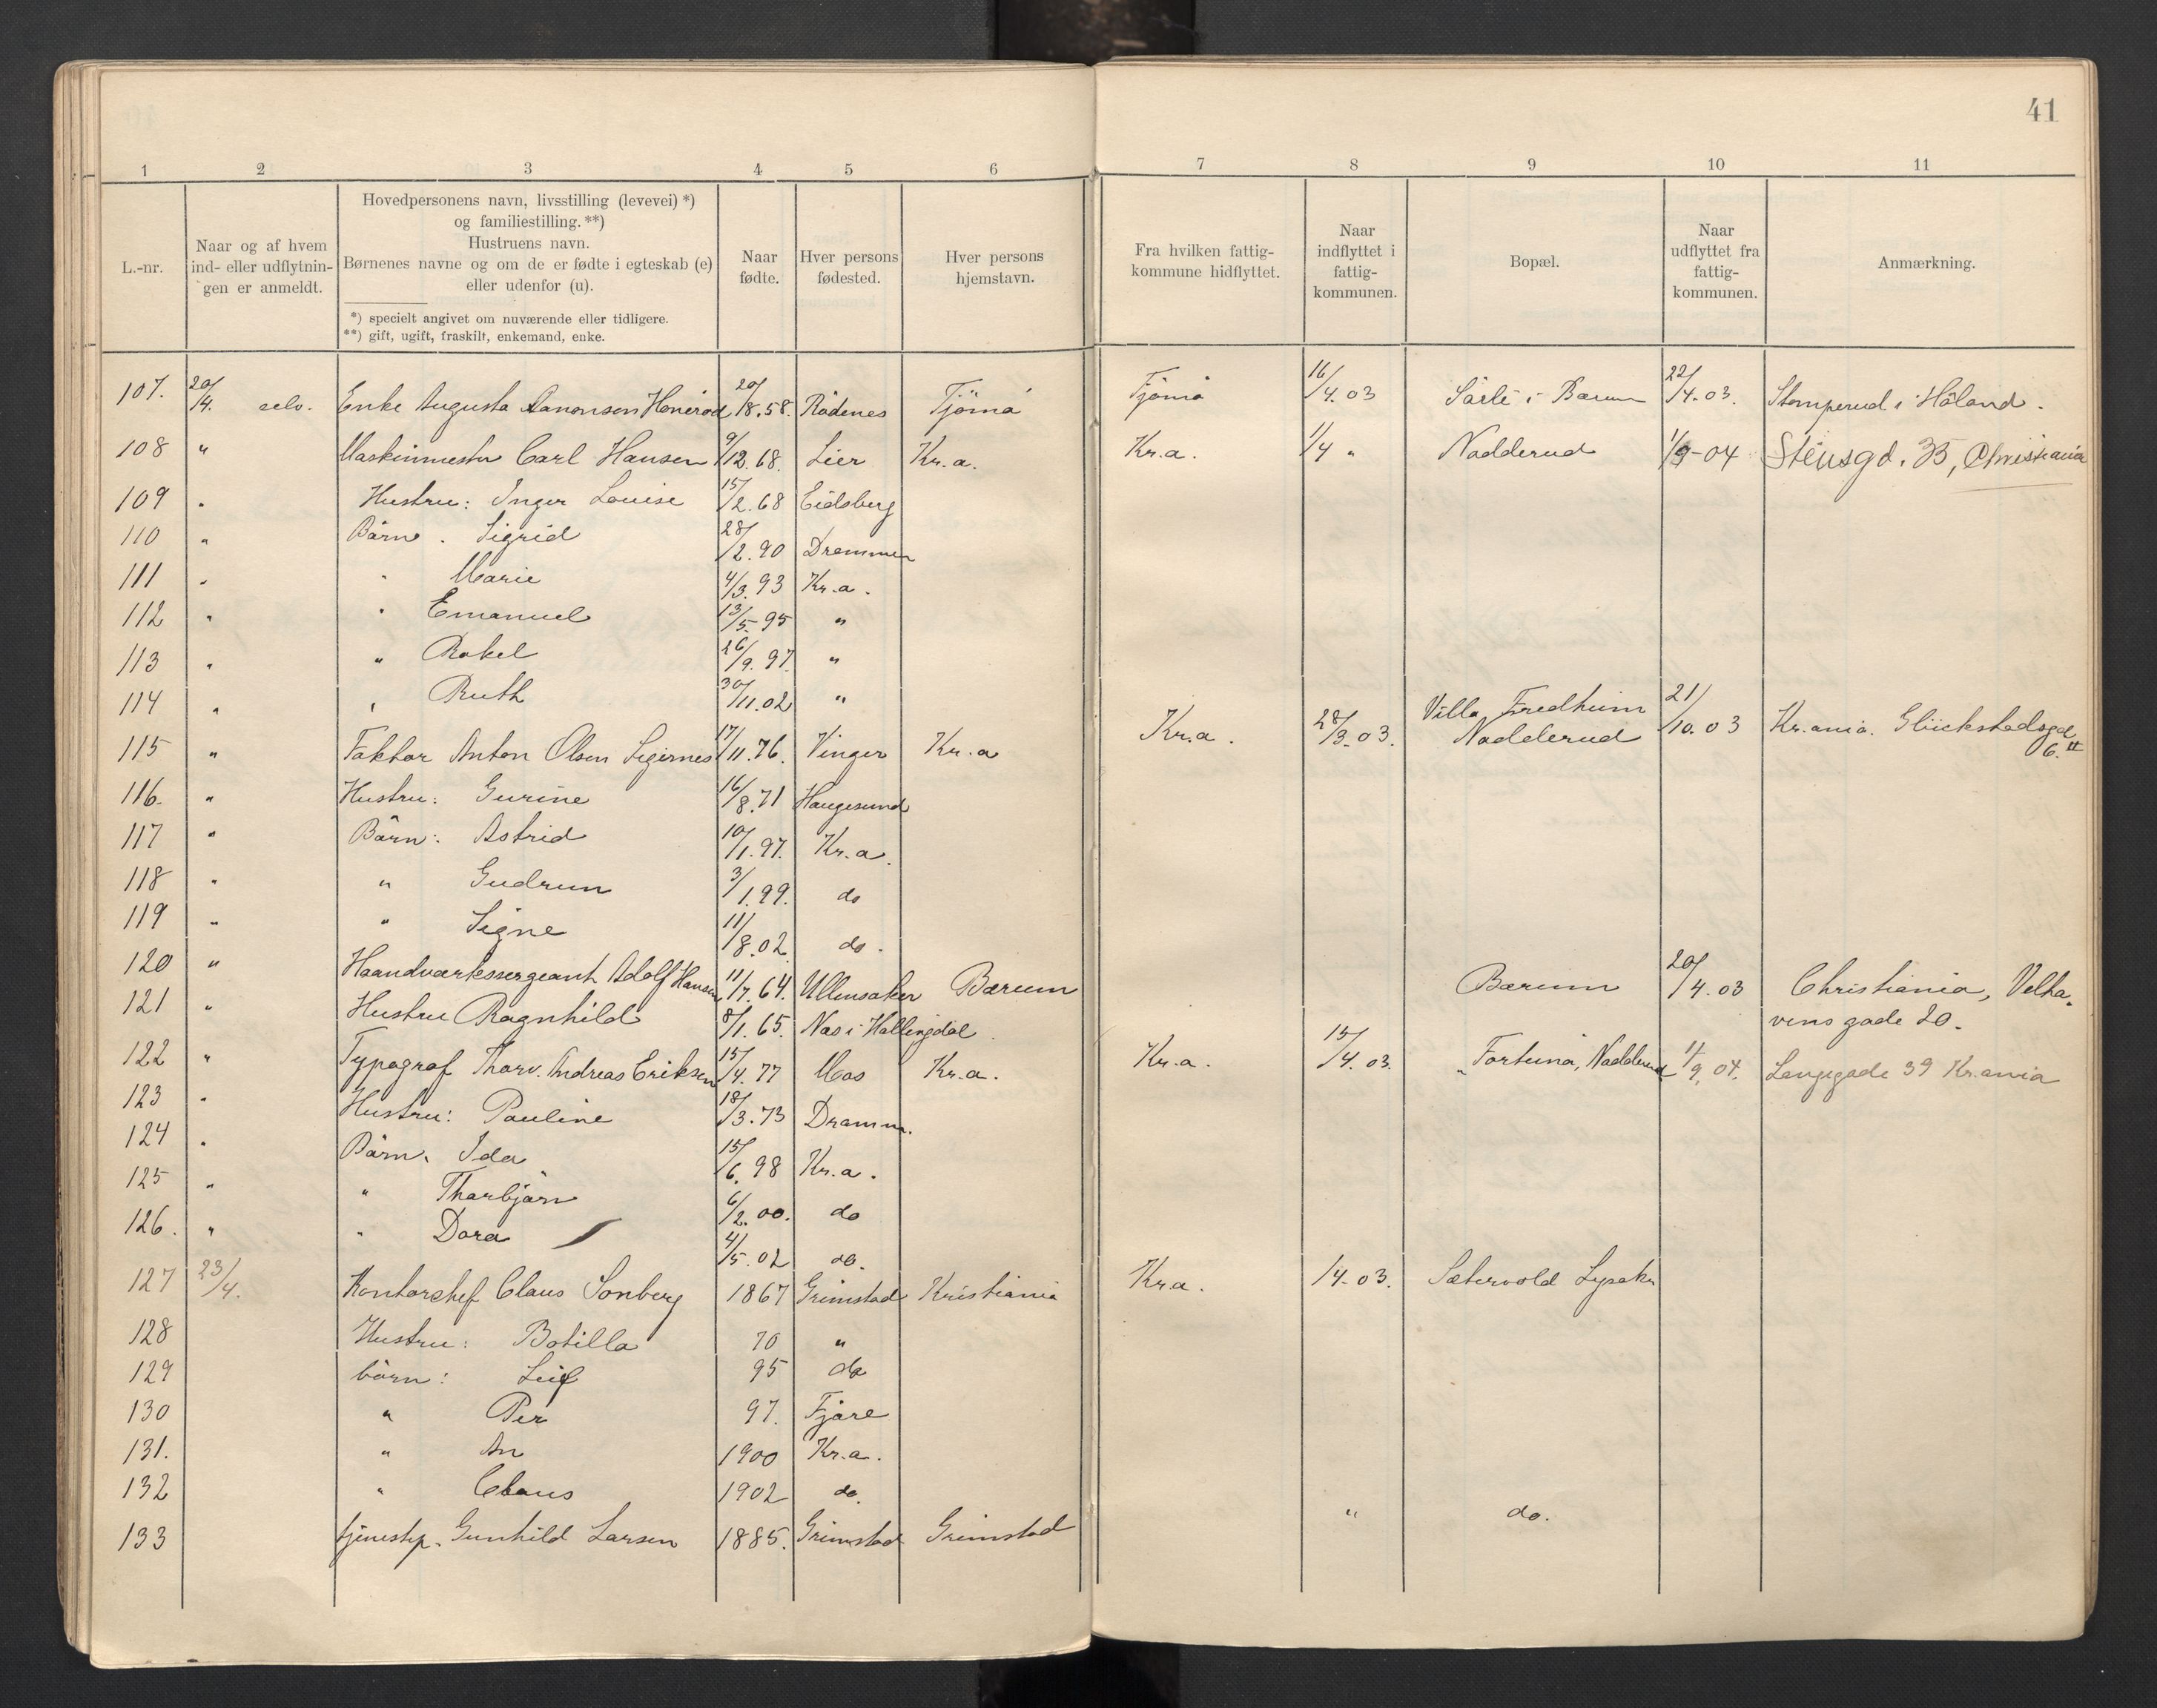 41
1 2 3 4 5 6 7 8 9 10 11
L.-nr.
Naar og af hvem
ind- eller udflytnin-
gen er anmeldt.
Hovedpersonens navn, livsstilling (levevei) *)
og familiestilling. **)
Hustruens navn.
Børnenes navne og om de er fødte i egteskab (e)
eller udenfor (u).
*) specielt angivet om nuværende eller tidligere.
**) gift, ugift, fraskilt, enkemand, enke.
Naar
fødte.
Hver persons
fødested.
Hver persons
hjemstavn.
Fra hvilken fattig-
kommune hidflyttet.
Naar
indflyttet i
fattig-
kommunen.
Bopæl.
Naar
udflyttet fra
fattig-
kommunen.
Anmærkning.
107. 20/4. selv. Enke Augusta Aanonsen Honeröd 20/8.58. Rödenes Tjömö Tjömö 16/4.03 i Bærum 22/4.03. Stomperud i Höland.
108 " Maskinmester Carl Hansen 9/12.68. Lier Kr.a. Kr.a. 1/4 " Nadderud 1/9-04 Stensgd. 35, Christiania
109 " Hustru: Inger Louise 15/2.68 Eidsberg
110 " Börn. Sigrid 28/2.90 Drammen
111 " " Marie 4/3.93 Kr.a.
112 " " Emanuel 13/5-95 "
113 " " Rakel 26/9.97. "
114 " " Ruth 30/11.02 "
115 " Faktor Anton Olsen Sigernes 17/11.76. Vinger Kr.a Kr.a. 28/3.03. Villa Fredheim Nadderud 21/10.03 Kr.ania. Glückstadsgd 6.II
116. " Hustru: Gurine 16/8.71 Haugesund
117 " Börn: Astrid 10/1.97. Kr.a.
118 " " Gudrun 3/1.99. do
119 " " Signe 11/8.02 do.
120 " Haandværkssergeant Adolf Hansen 11/7.64. Ullensaker Bærum Bærum 20/4.03 Christiania, Velha-
vens gade 20.
121 " Hustru Ragnhild 8/1.65. Nes i Hallingdal.
122 " Typograf Thorv. Andreas Eriksen 15/4.77 Mos Kr.a. Kr.a. 15/4.03. "Fortuna, Nadderud 1/9.04. Langegade 39 Kr.ania
123 " Hustru: Pauline 18/3.73 Dramm.
124 " Börn. Ida 15/6.98 Kr.a.
125 " " Thorbjörn 6/2.00. do
126. " " Dora 4/5.02 do.
127 23/4. Kontorchef Claus Sonberg 1867 Grimstad Kristiania Kr.a. /4-03. Sætervold Lysaker
128 Hustru: Botilla 70 "
129 börn: Leif 95 do
130 " Per 97. Fjære
131. " An 1900 Kr.a.
132 " Claus 1902 do.
133 tjenestep. Gunhild Larsen 1885. Grimstad Grimstad " do.